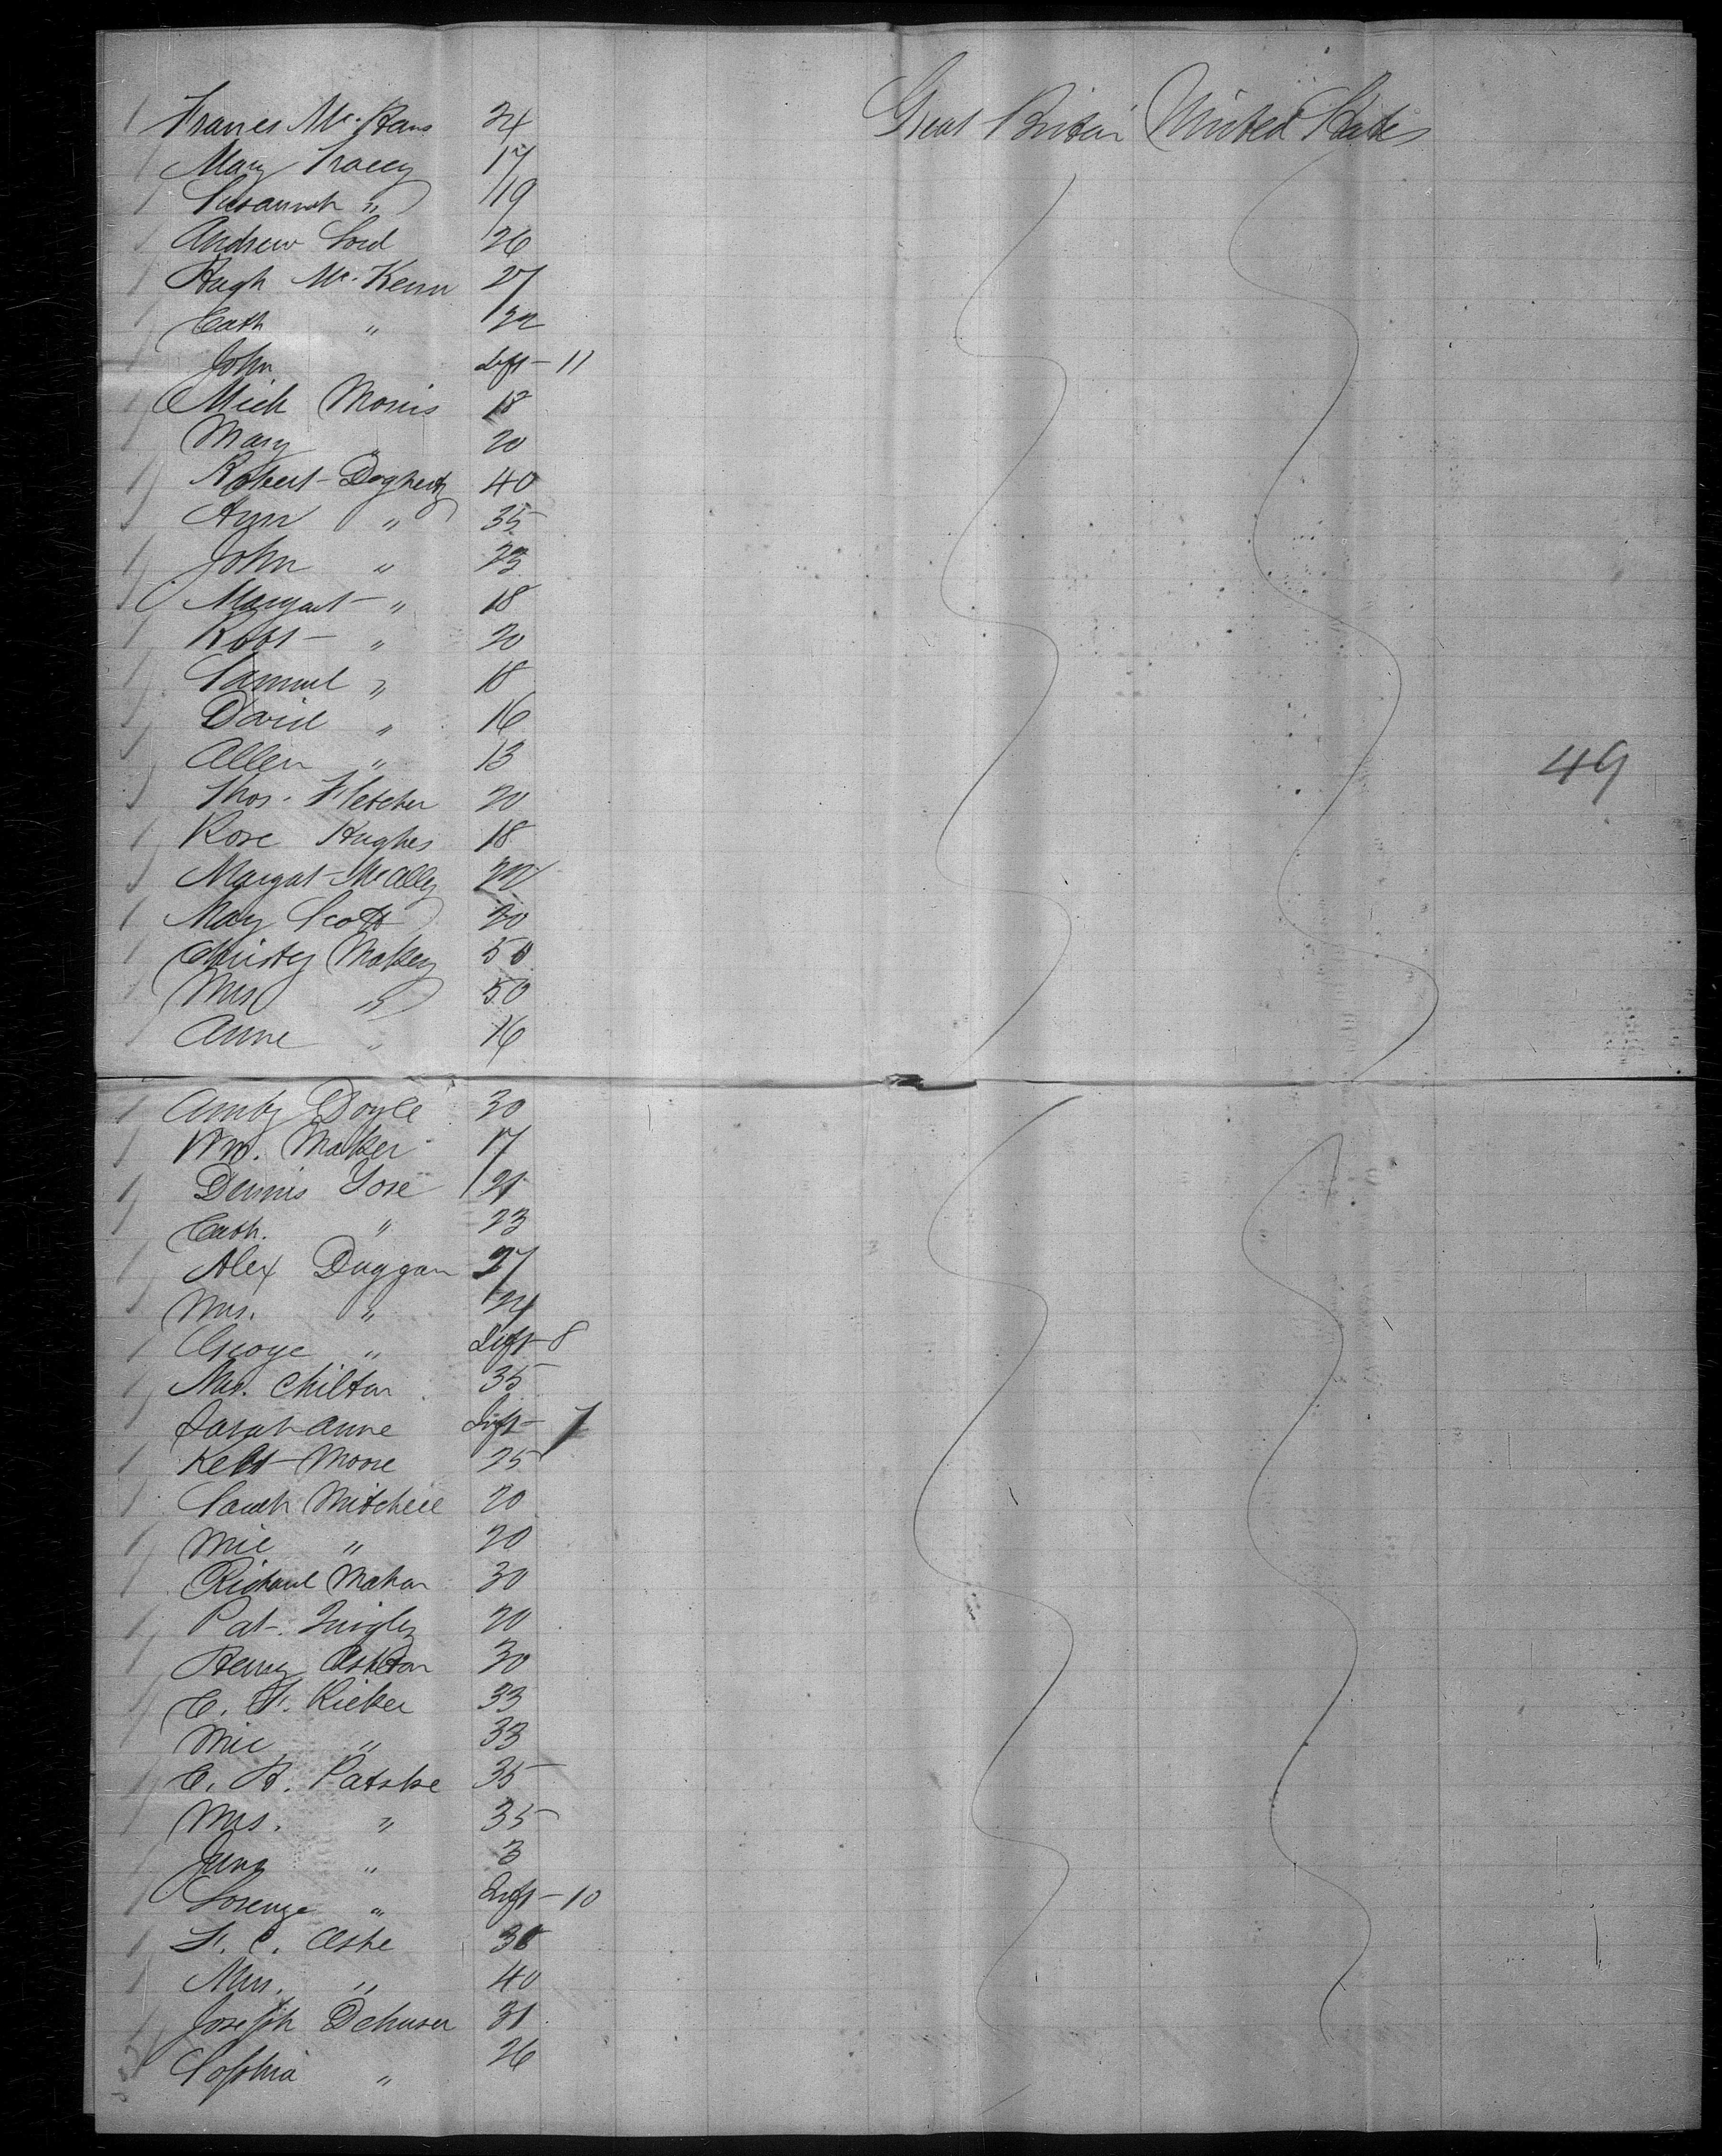 Frances Mc. 24 Great Britain United States
Mary Tracey 17
Susannah " 19
Andrew Lord 26
Hugh Mc. Kenn 27
Cath " 22
John Inft - 11
Mich Morris 18
Mary " 20
Robert Dogherty 40
Ann " 35
John " 23
Margaret " 18
Robt " 20
Samuel " 18
David " 16
Allen " 13
49
Thos. Fletcher 20
Rose Hughes 18
Margat McAlley 22
Mary Scott 20
Christy Makey 50
Mrs " 50
Anne " 16
Doyle 30
Wm. Maker 17
Dennis 21
Cath. " 23
Alex Duggan 27
Mrs. " 24
George " Inft - 8
Mrs. Chilton 35
Sarah Anne Inft - 7
Moore 25
Sarah Mitchell 20
Mic " 20
Richard Mahon 30
Pat. Quigley 20
Henry Ashton 30
C. F. Rieker 33
Mic " 33
C. H. Patske 35
Mrs. " 35
" 3
Lorenze " Inft - 10
F. C. Ashe
Mrs. " 40
Joseph Dehuser 31
Sophia " 26